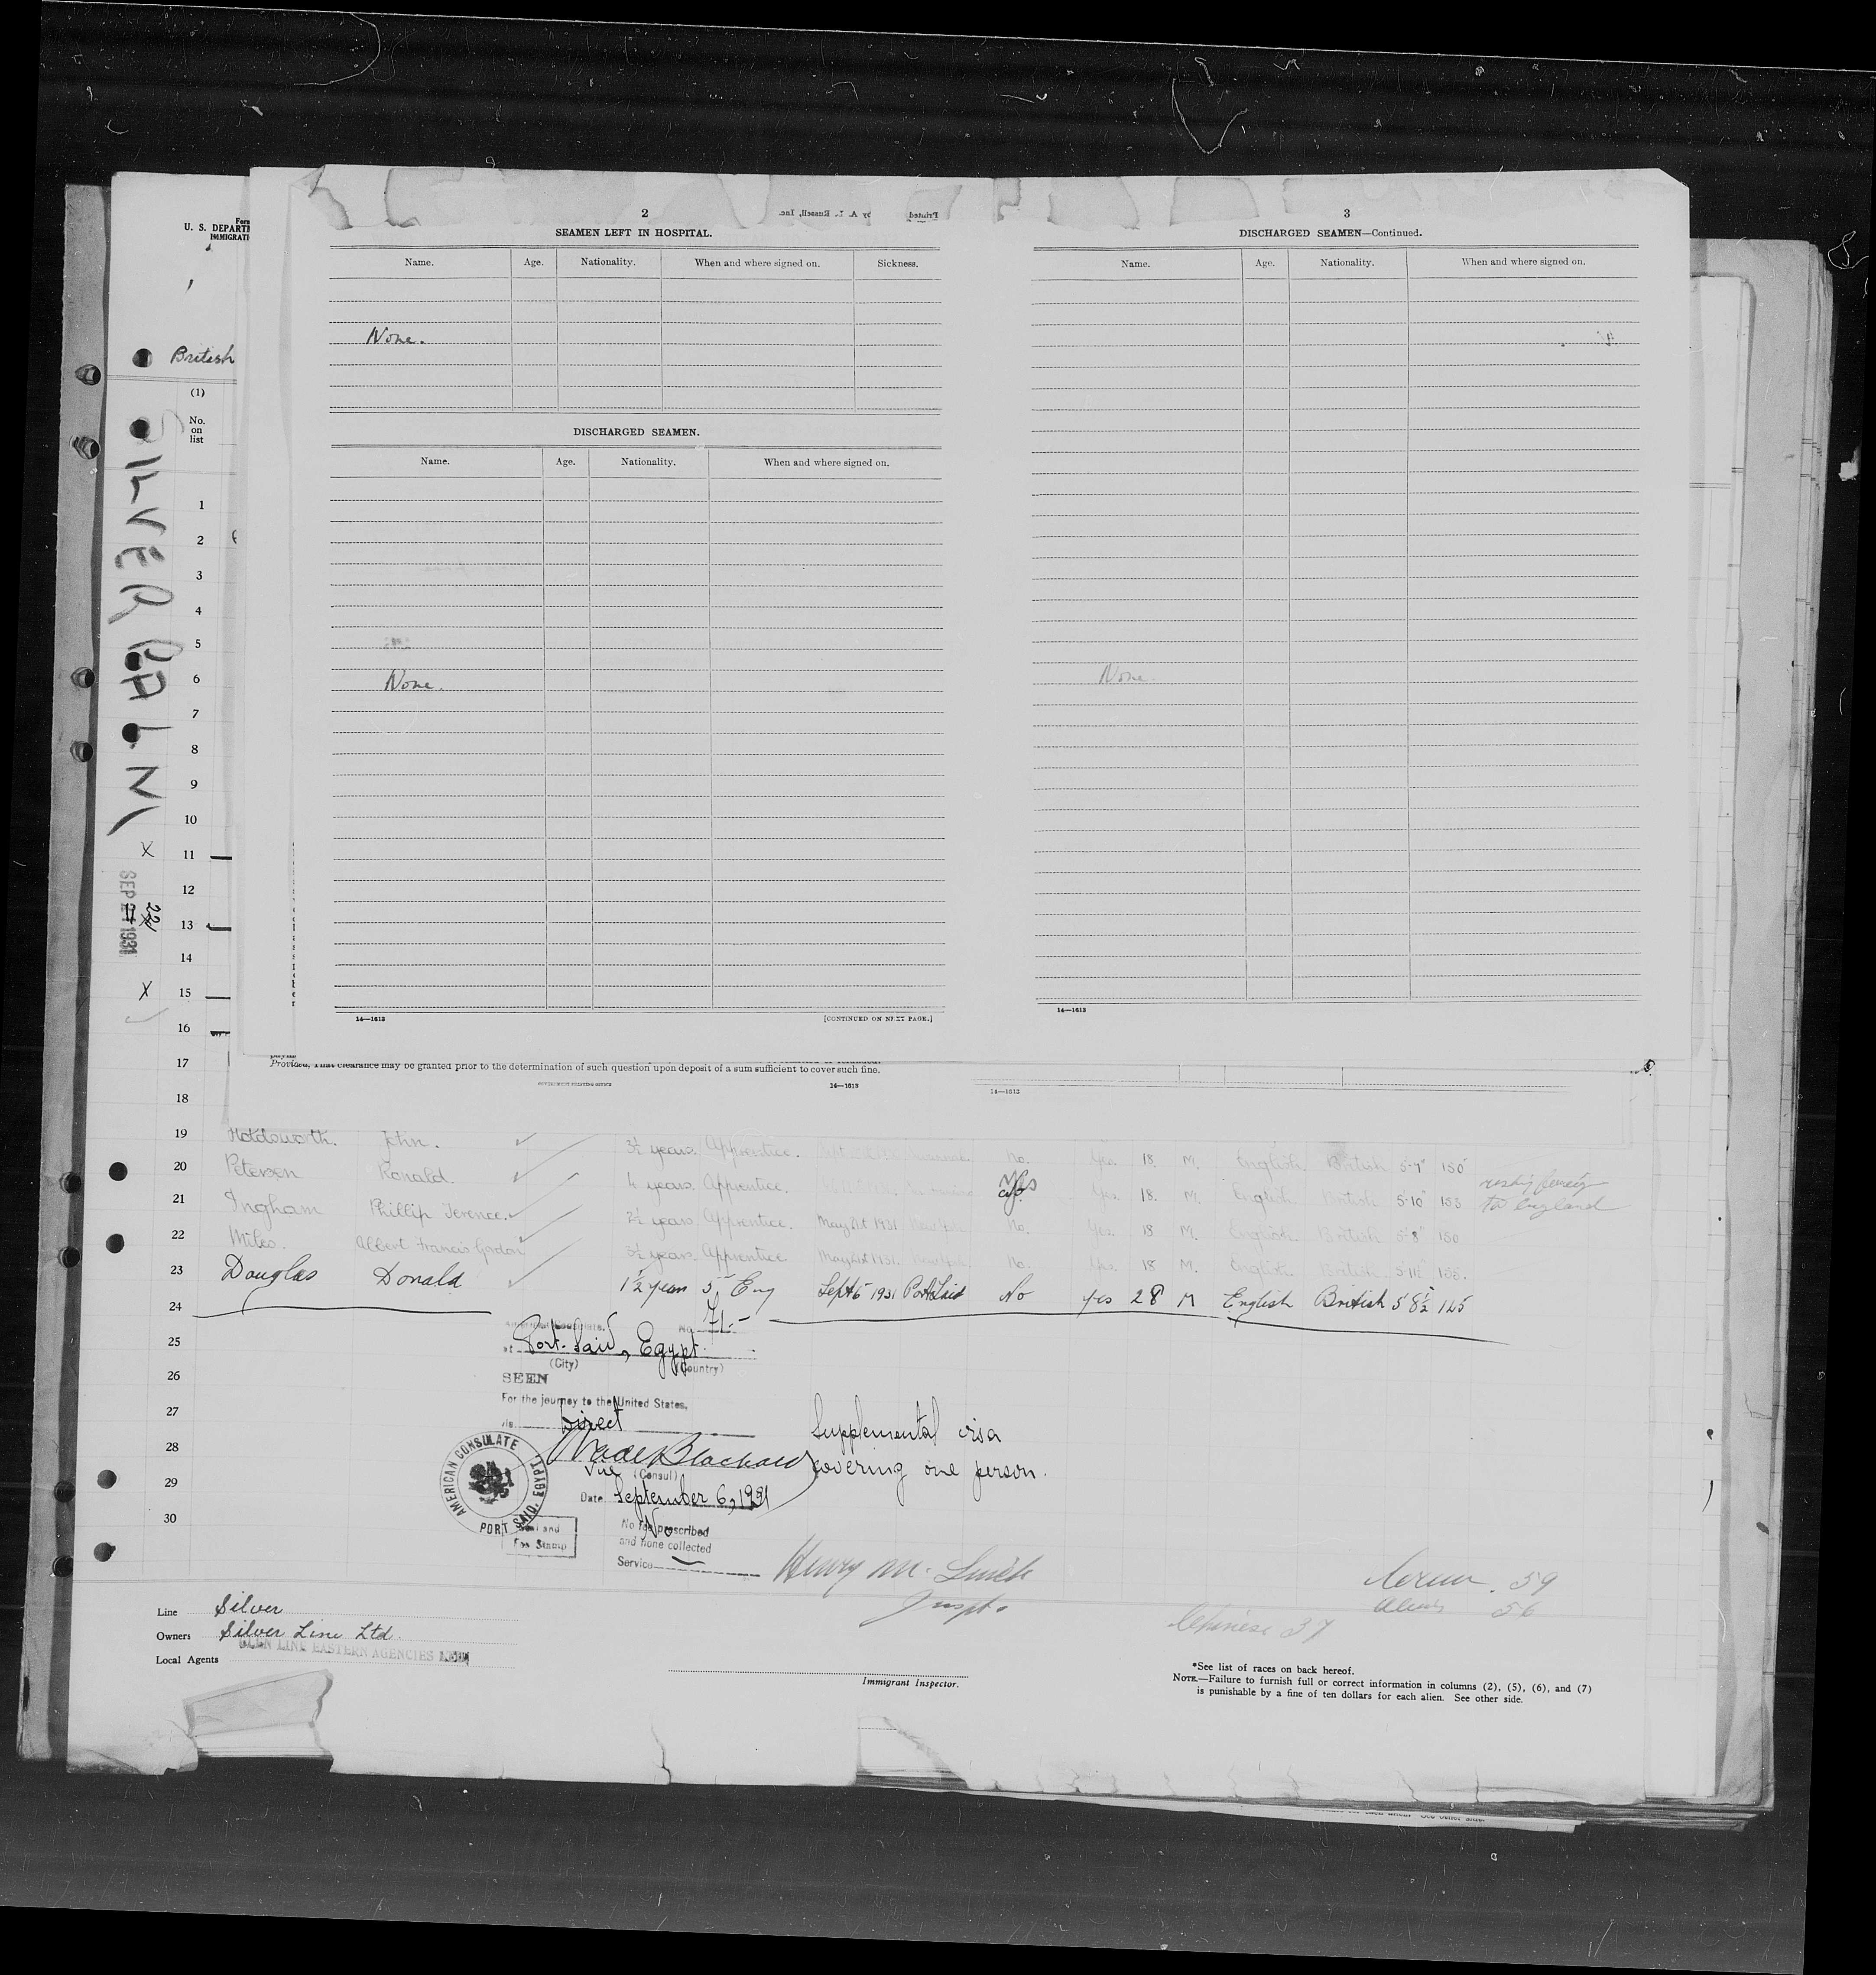 2
SEAMEN LEFT IN HOSPITAL.
Name. Age. Nationality. When and where signed on. Sickness.
None.
DISCHARGED SEAMEN.
Name. Age. Nationality. When and where signed on.
None.
14—1613 [CONTINUED ON NEXT PAGE.]
3
DISCHARGED SEAMEN—Continued.
Name. Age. Nationality. When and where signed on.
None.
14—1613
Printed by A. Russell, Inc.
Form
U. S. DEPARTM
IMMIGRATI
British
(1)
No.
on
list
SILVERPALM
SEP 1931
22
1
2
3
4
5
6
7
8
9
10
X 11
12
X 13
14
X 15
16
17
18
Provided, That clearance may be granted prior to the determination of such question upon deposit of a sum sufficient to cover such fine.
GOVERNMENT PRINTING OFFICE 14—1613
14—1613
19 Holdsworth. John. 3½ years. Apprentice. No. Yes. 18. M. English British 5·7" 150
20 Petersen Ronald. 4 years. Apprentice. Yes Yes. 18. M. English British 5·10" 153
to England
21 Ingham Phillip Terence. 2½ years Apprentice. May 21st 1931 No. Yes. 18 M. English British 5·8" 150
22 Miles. Albert Francis Gordon 3½ years. Apprentice May 21st 1931. No. Yes. 18 M. English British
23 Douglas Donald 1½ year 5 Eng Sept 6 1931 Port Said No Yes 28 M English British 5' 8½ 145
24
25
26
27
28
29
30
American Consulate, No. 71.-
at Port-Said, Egypt.
(City) (Country)
SEEN
For the journey to the United States,
via Direct
Vice (Consul)
Date September 6, 1931
AMERICAN CONSULATE
PORT SAID, EGYPT.
Seal and
Fee Stamp
No fee prescribed
and none collected
Service
Supplemental visa
covering one person.
Henry M. Smith
Inspt.
59
Aliens 56
Chinese 37
Line Silver
Owners Silver Line Ltd.
Local Agents GLEN LINE EASTERN AGENCIES
Immigrant Inspector.
*See list of races on back hereof.
NOTE.—Failure to furnish full or correct information in columns (2), (5), (6), and (7)
is punishable by a fine of ten dollars for each alien. See other side.